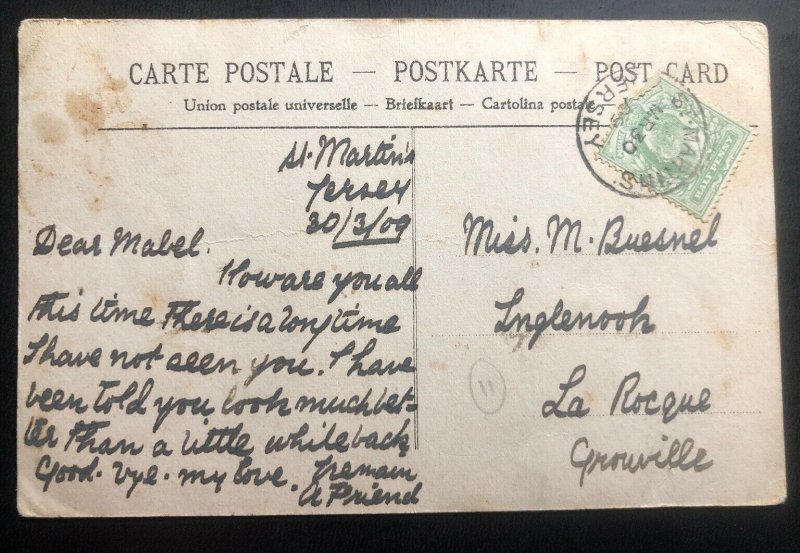 CARTE POSTALE — POSTKARTE — POST CARD
Union postale universelle — Briefkaart — Cartolina postale
St. Martin's
Jersey
30/3/09
Dear Mabel.
How are you all
this time There is a long time
I have not seen you. I have
been told you look much bet-
ter than a little while back
Good-bye. my love. I remain
A Friend
Miss. M. Buesnel
Inglenook
La Rocque
Grouville
11
ST. MARTINS
JERSEY
MR 30
HALF PENNY